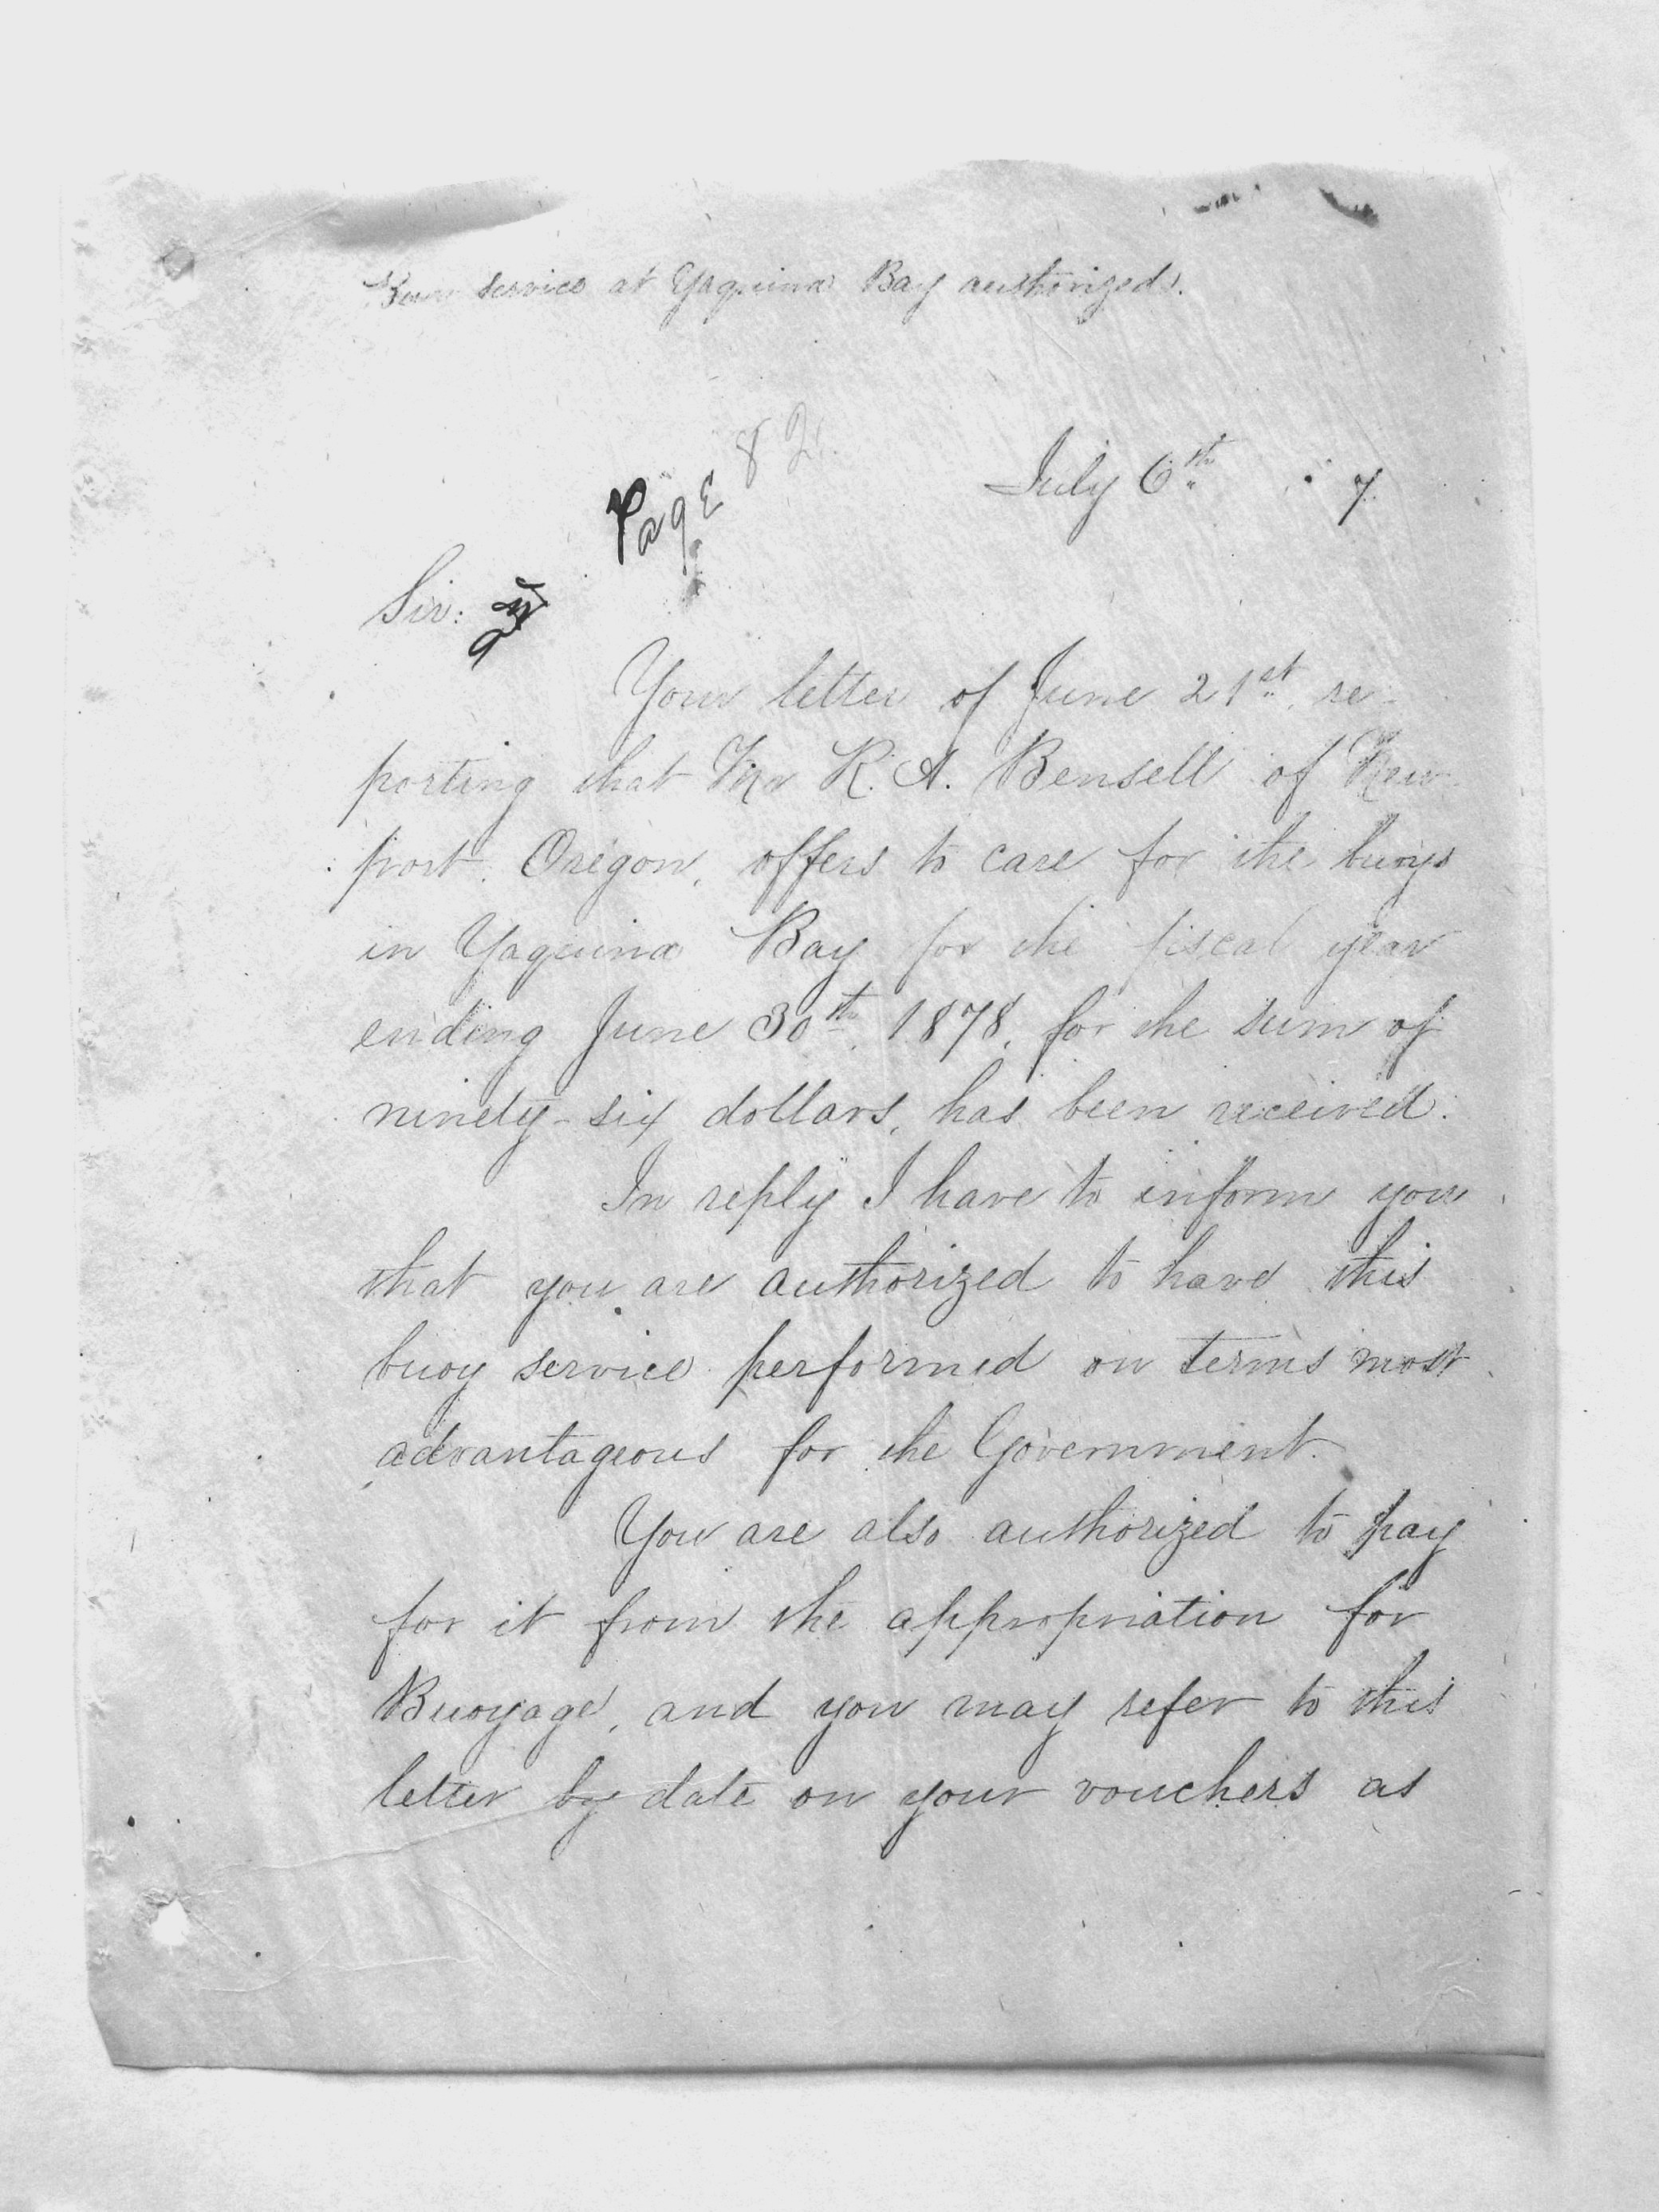 Buoy service at Yaquina Bay authorized.
Page 82
July 6th 7.
Sir:
Your letter of June 21st, re-
porting that Mr R. A. Bensell of New-
port. Oregon, offers to care for the buoys
in Yaquina Bay for the fiscal year
ending June 30th, 1878, for the sum of
ninety-six dollars, has been received.
In reply I have to inform you
that you are authorized to have this
buoy service performed on terms most
advantageous for the Government.
You are also authorized to pay
for it from the appropriation for
Buoyage, and you may refer to this
letter by date on your vouchers as